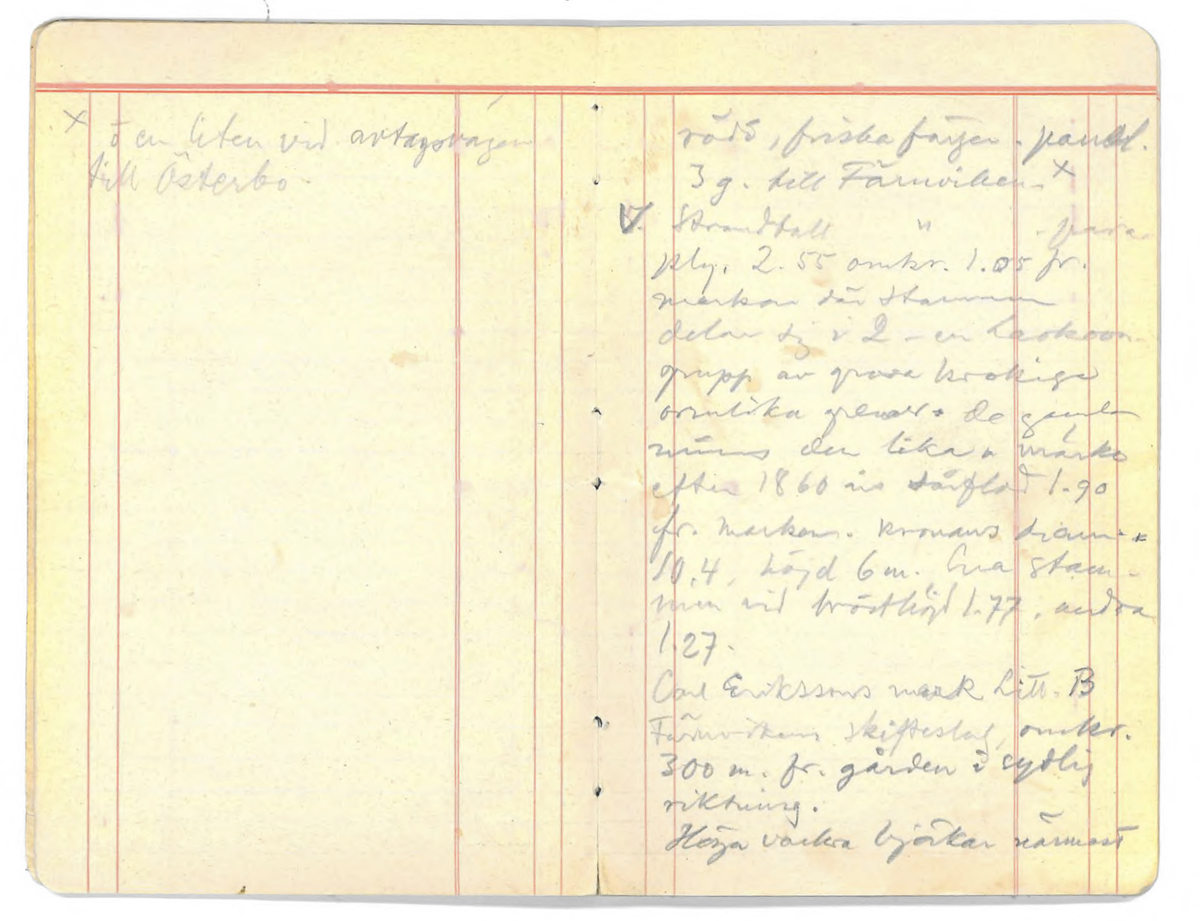 x ö en liten vid avtagsvägen
till Österbo.
röd, friska färger. panel.
3 g. till Färnviken. x
V. Strandtall " . para-
ply. 2.55 omkr. 1.05 fr.
marken där stammen
delar sig i 2 - en Laokoon-
grupp av grova krokiga
ormlika grenar. De gamla
minns den lika a märke
efter 1860 års 1.90
fr. marken. Kronans diam.
10,4, höjd 6 m. Ena stam-
men vid brösthöjd 1.77, andra
1.27.
Carl Erikssons mark Litt. B
Färnvikens skifteslag, omkr.
300 m. fr. gården i sydlig
riktning.
Höga vackra björkar närmast